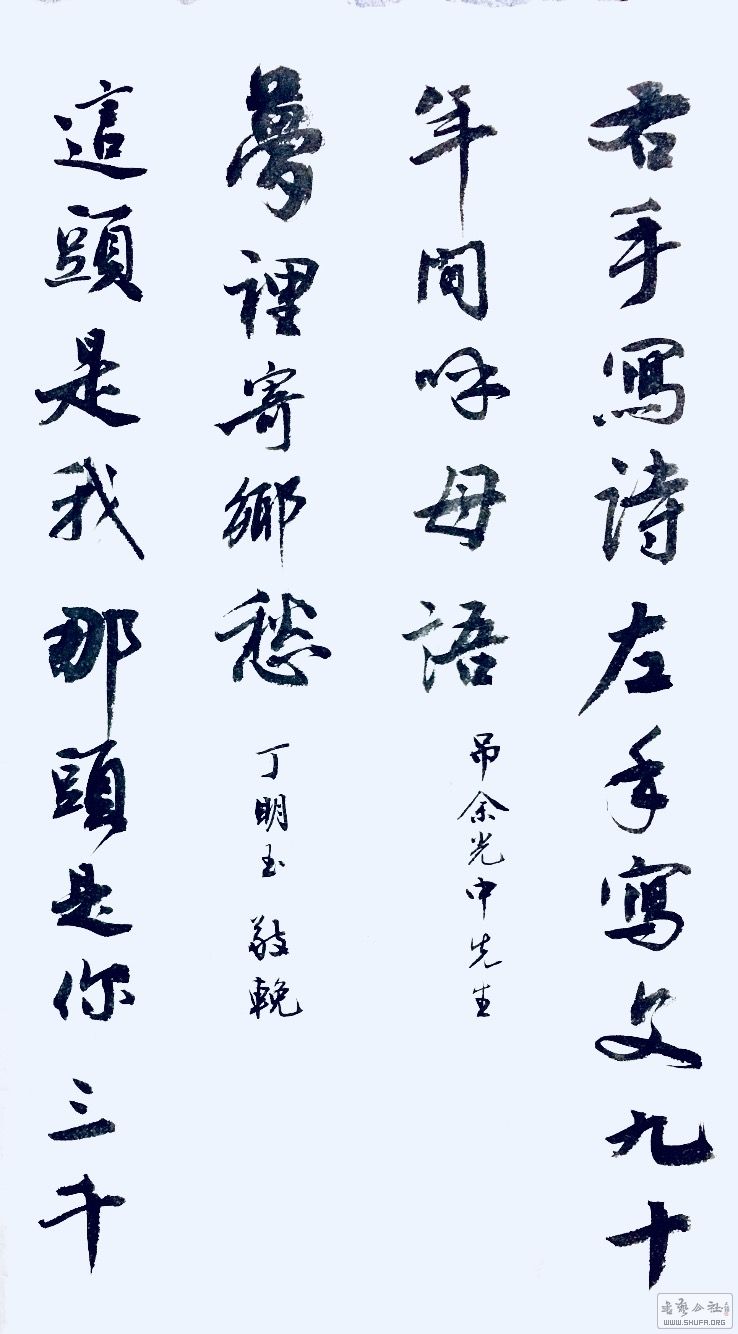 右手寫詩左手寫文九十
年間呼母語
吊余光中先生
這頭是我那頭是你三千
夢裡寄鄉愁
丁明玉 敬輓
书藝公社
WWW.SHUFA.ORG